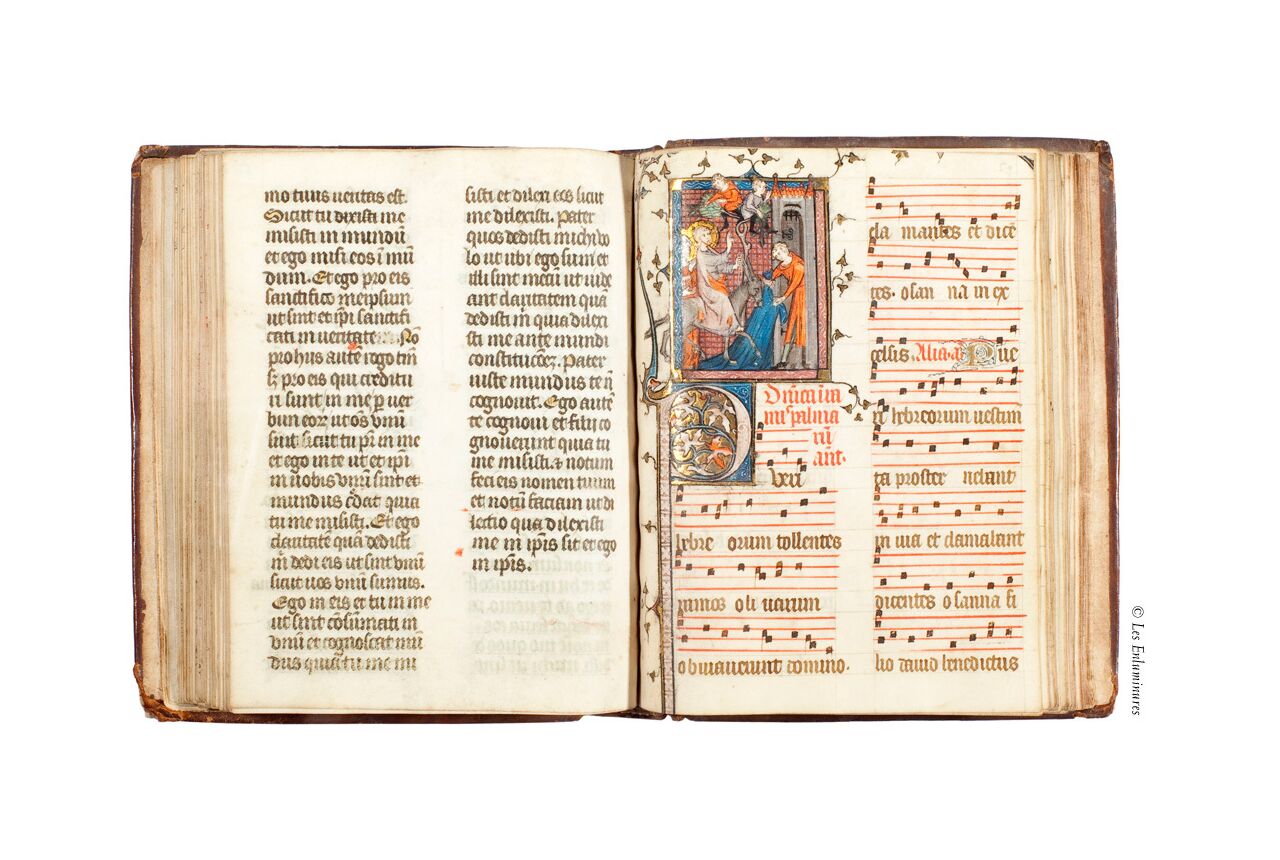 mo tuus ueritas est.
Sicut tu dixisti me
misisti in mundū
et ego misi eos ī mū
dum. Et ego pro eis
sanctifico meipsum
ut sint et ip̄i sanctifi
cati in ueritate. No
pro hiis autē rogo tm̄
sȝ pro eis qui creditu
ri sunt in me p uer
bum eorȝ ut oēs vnū
sint. sicut tu pr̄ in me
et ego in te ut et ip̄i
in nobis vnū sint et
mundus c̄dat quia
tu me misisti. Et ego
claritatē quā dedisti
m̄ dedi eis ut sint vnū
sicut nos vnū sumus.
Ego in eis et tu in me
ut sint cōsūmati in
vnū et cognoscat mū
dus quia tu me mi
sisti et dilexi eos sicut
me dilexisti. Pater
quos dedisti michi vo
lo ut ubi ego sum et
illi sint mecū ut uide
ant claritatem quā
dedisti m̄ quia dilexi
sti me ante mundi
constitucōeȝ. Pater
iuste mundus te n̄
cognouit. Ego autē
te cognoui et hii co
gnouerunt quia tu
me misisti. et notum
feci eis nomen tuum
et notū faciam ut di
lectio qua dilexisti
me in ip̄is sit et ego
in ip̄is.
Dn̄ica in ra
mis palma
rū
ant.
Pueri
hebre orum tollentes
ramos oli uarum
obuiauerunt domino.
cla mantes et dicē
tes. osan na in ex
celsis. Alia. a. Pue
ri hebreorum uestim
ta proster nebant
in uia et clamabant
dicentes osanna fi
lio dauid benedictus
© Les Enluminures